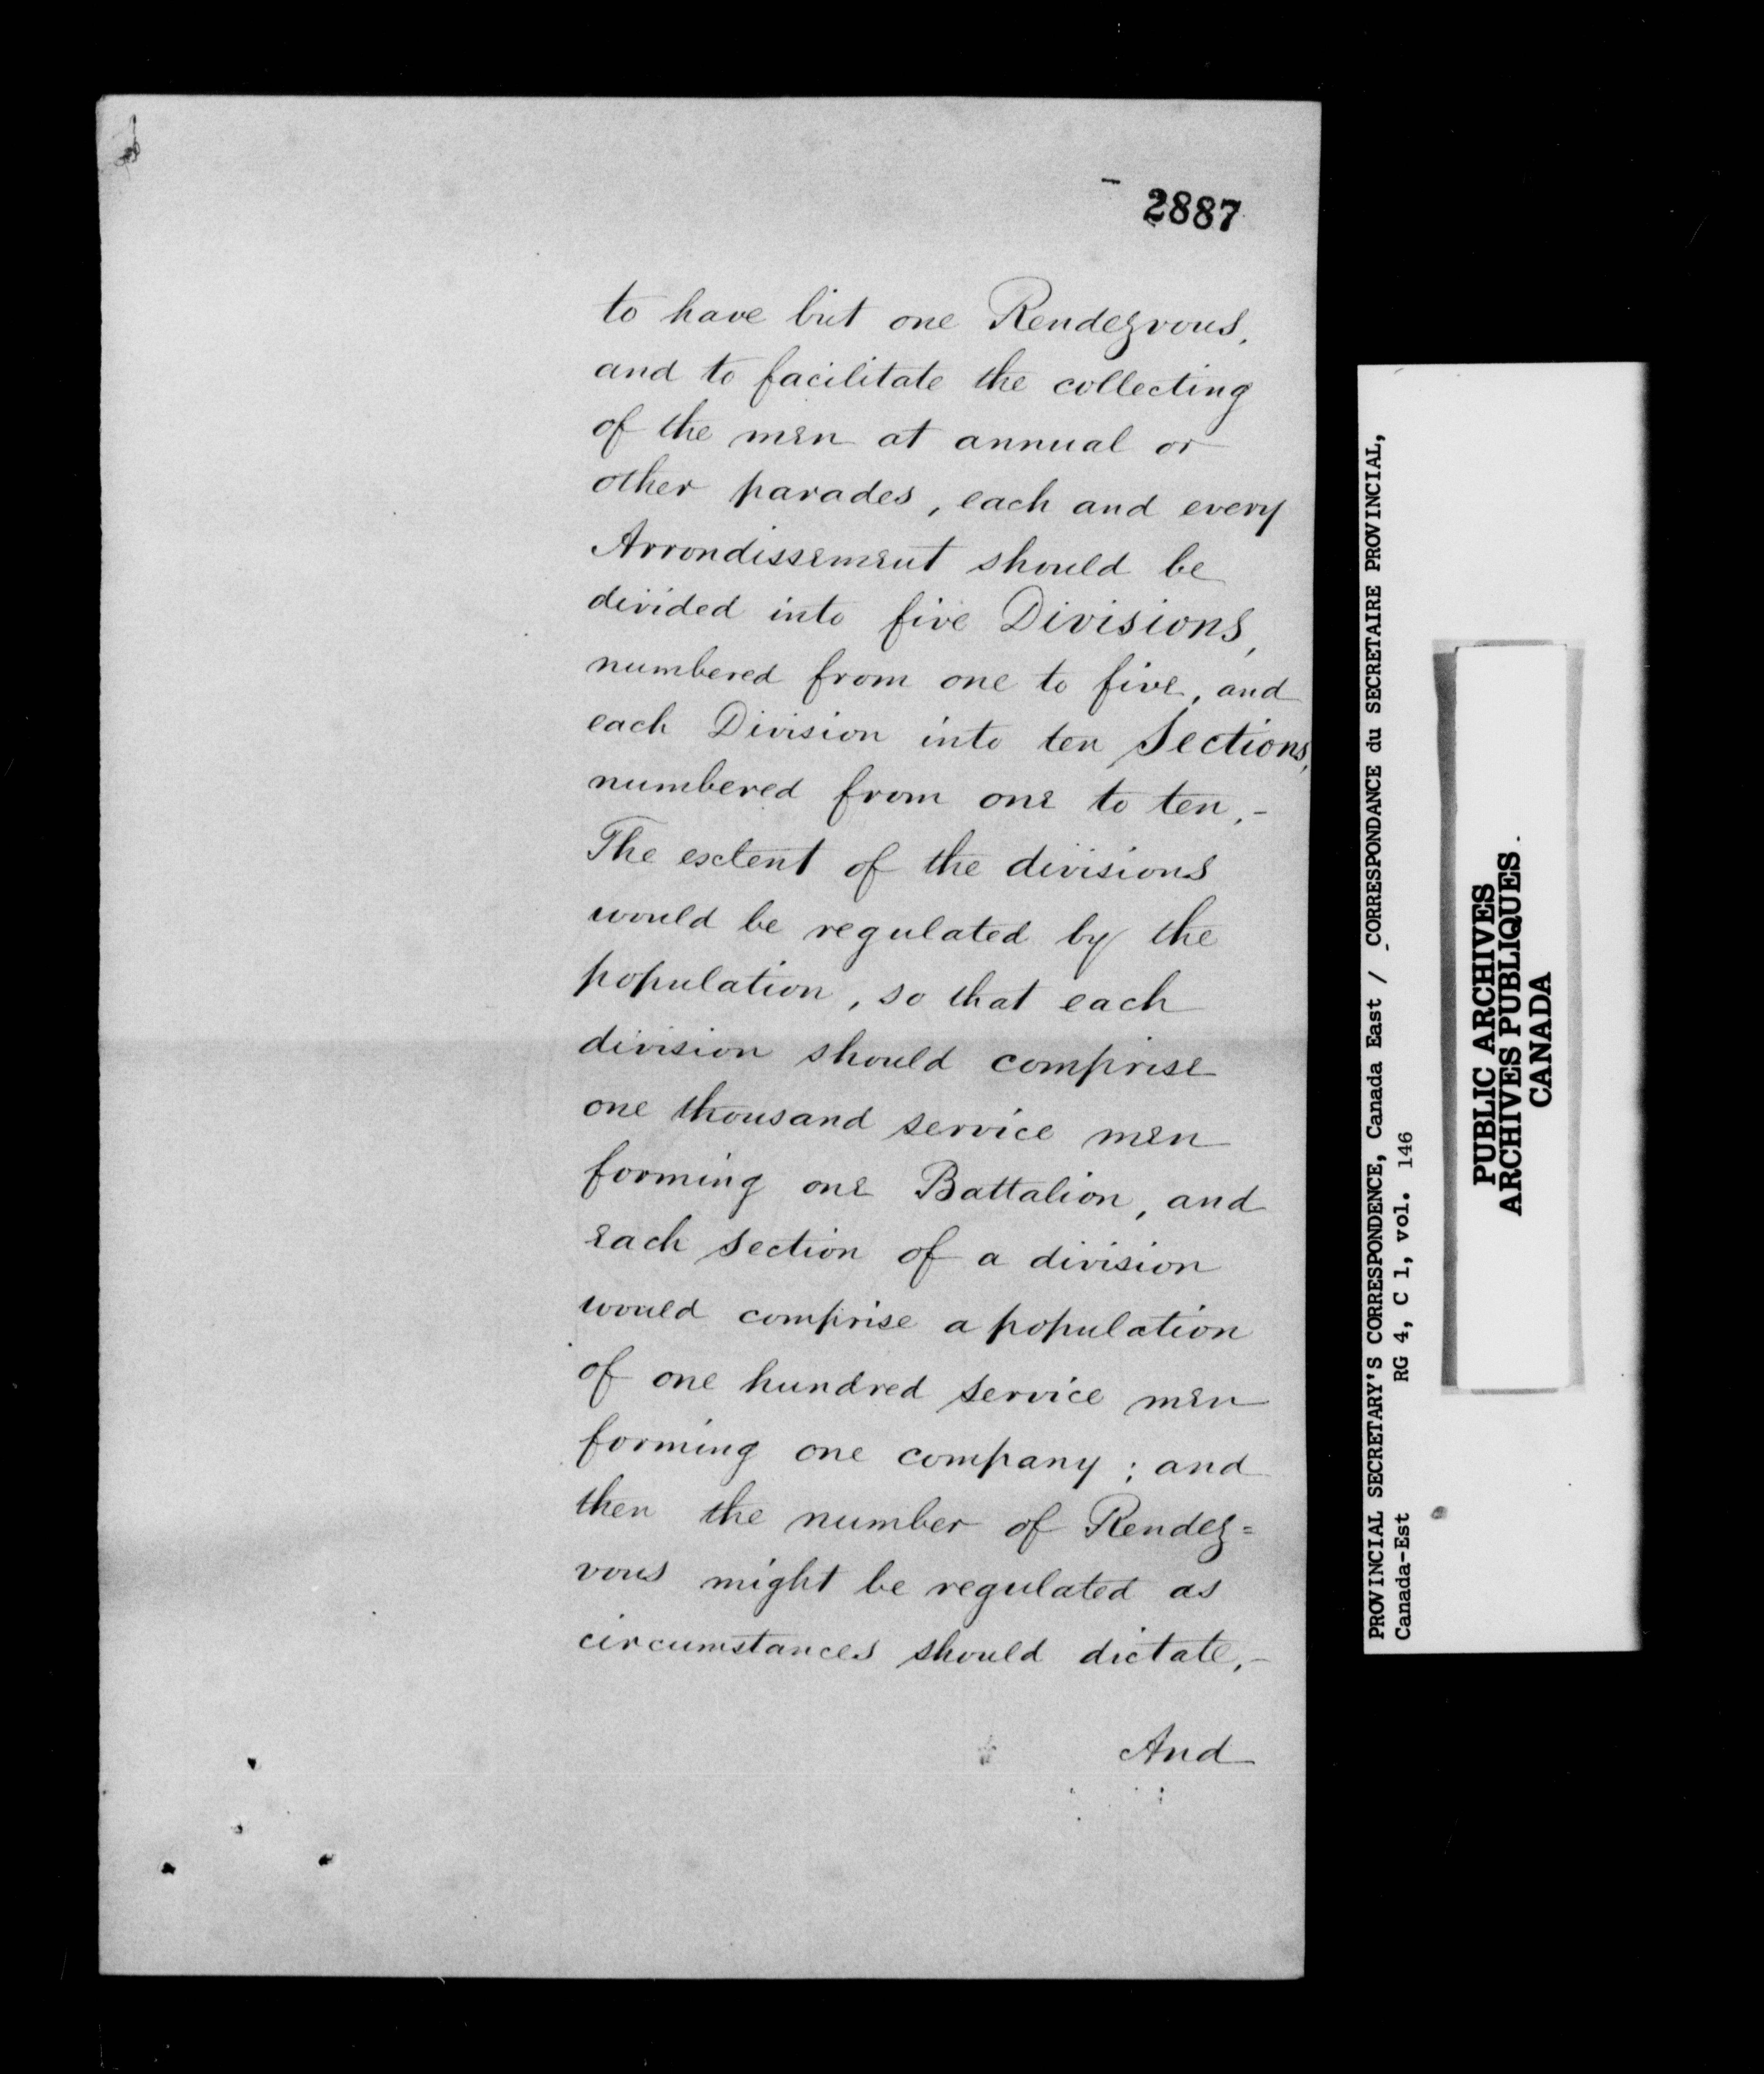 2887
to have but one Rendezvous,
and to facilitate the collecting
of the men at annual or
other parades, each and every
Arrondissement should be
divided into five Divisions,
numbered from one to five, and
each Division into ten Sections,
numbered from one to ten.-
The extent of the divisions
would be regulated by the
population, so that each
division should comprise
one thousand service men
forming one Battalion, and
each section of a division
would comprise a population
of one hundred service men
forming one company; and
then the number of Rendez=
vous might be regulated as
circumstances should dictate.-
And
PROVINCIAL SECRETARY'S CORRESPONDENCE, Canada East / CORRESPONDANCE du SECRETAIRE PROVINCIAL,
Canada-Est RG 4, C 1, vol. 146
PUBLIC ARCHIVES
ARCHIVES PUBLIQUES
CANADA